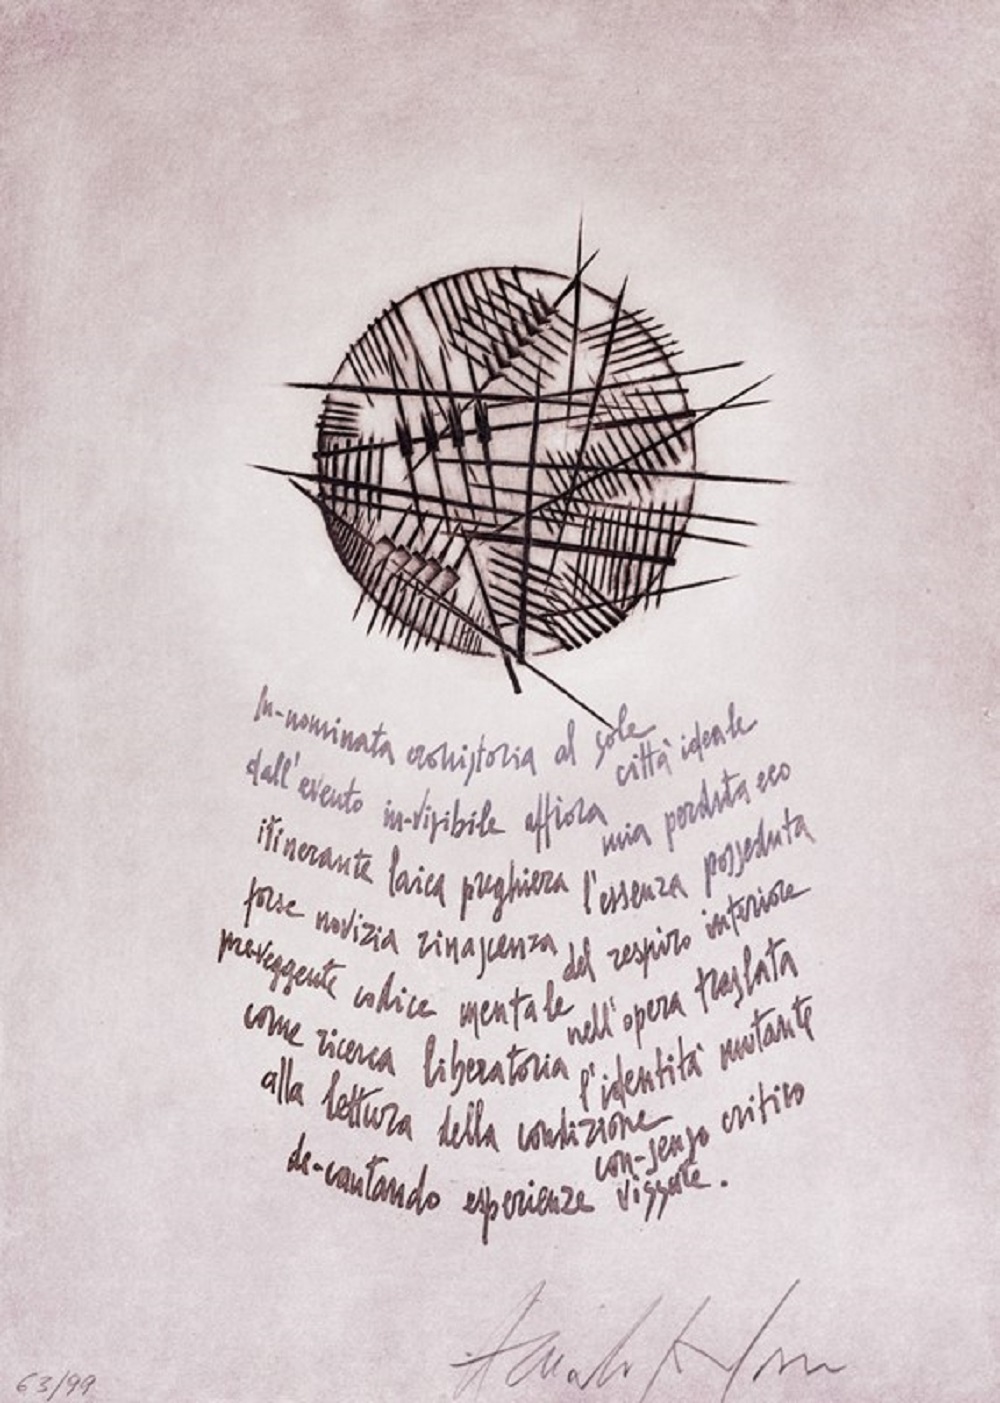 In-nominata crohistoria al sole città ideale
dall'evento in-visibile affiora mia perduta eco
itinerante laica preghiera l'essenza posseduta
forse novizia rinascenza del respiro interiore
pre-veggente codice mentale nell'opera traslata
come ricerca liberatoria l'identità mutante
alla lettura della condizione con-senso critico
de-cantando esperienze vissute.
63/99